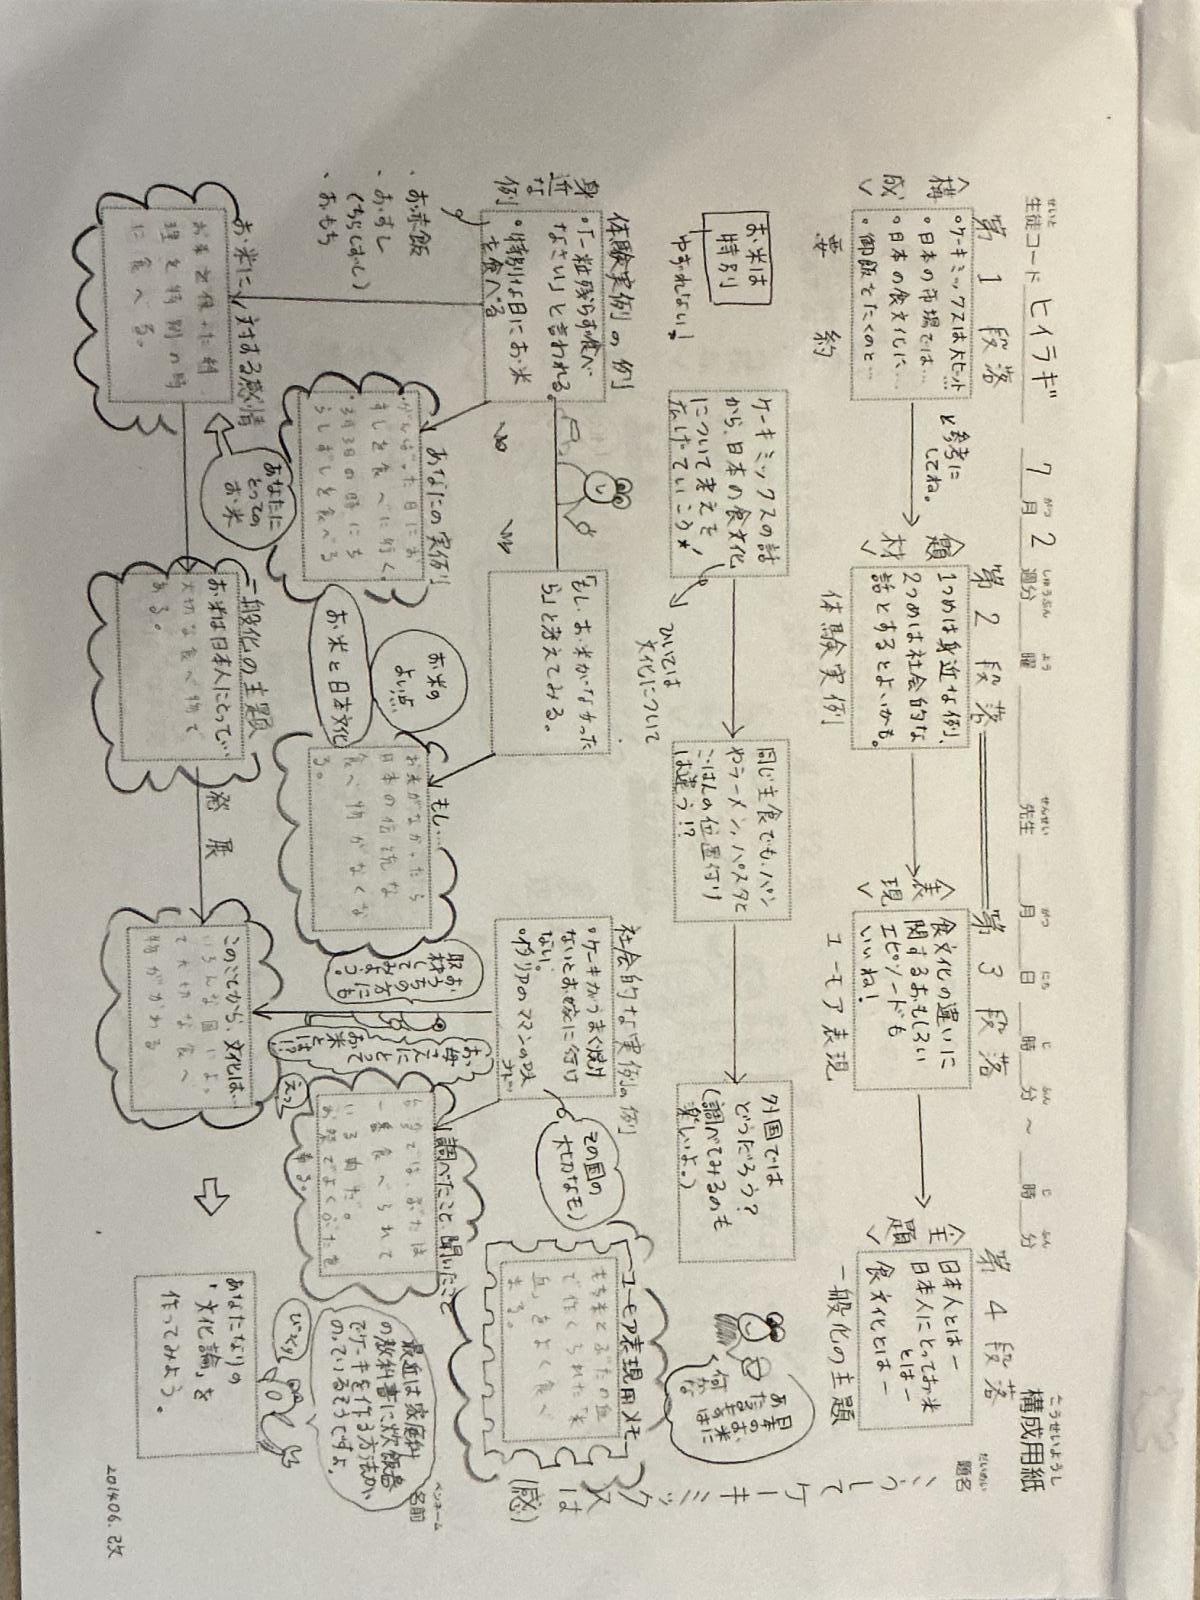 こうせいようし
構成用紙
せいと
生徒コード ヒイラギ 7月2週分 曜 先生 月 日 時 分～ 時 分
がつ しゅうぶん よう せんせい がつ にち じ ふん じ ふん
だいめい
題名
こうしてケーキミックスは(感)
ペンネーム
名前
第1段落
第2段落
第3段落
第4段落
<構成>
・ケーキミックスは大ヒット
・日本の市場では…
・日本の食文化に…
・御飯をたくのと…
要約
と参考にしてね。
<題材>
1つめは身近な例、
2つめは社会的な
話とするとよいかも。
体験実例
<表現>
食文化の違いに
関するおもしろい
エピソードも
いいね!
ユーモア表現
<主題>
日本人とはー
日本人にとってお米
とはー
食文化とはー
一般化の主題
お米は
特別
ゆずれない!
ケーキミックスの話
から、日本の食文化
について考えを
広げていこう★
ひいては
文化について
同じ主食でも、パン
やラーメン、パスタと
ごはんの位置付け
は違う!?
外国では
どうだろう?
(調べてみるのも
楽しいよ。)
日本のお米は、
あなたの何かな
体験実例の例
身近な例
・「一粒残らず食べ
なさい」と言われる。
・特別な日にお米
を食べる
・お赤飯
・おすし
(ちらしずし)
・おもち
「もし、お米がなかった
ら」と考えてみる。
社会的な実例の例
・ケーキがうまく焼け
ないとお嫁に行け
ない。
・イタリアのママンの味
その国の
大切なもの
ユーモア表現用メモ
もち米とぶたの血
で作くられた「米
血」をよく食べ
まる。
あなたの実例
がんばった日にお
すしを食べに行く。
3月3日の時にち
らしずしを食べる
お米の
よい点
お米と日本文化
もし…
お米がなかったら
日本の伝統な
食べ物がなくな
る。
おうちの方にも
取材してみよう。
お母さんにとって
お米とは!?
えっ
調べたこと、聞いたこと
一番食べられて
いる肉だ。
お祭でよくぶたを
最近は家庭科
の教科書に炊飯器
でケーキを作る方法が
のっているそうですよ。
びっくり
お米に対する感情
お米を使った料
理を特別の時
に食べる。
あなたに
とっての
お米
一般化の主題
お米は日本人にとって…
大切な食べ物で
ある。
発展
このことから、文化は…
いろんな国によっ
て大切な食べ
物がかわる
あなたなりの
「文化論」を
作ってみよう。
201406.改